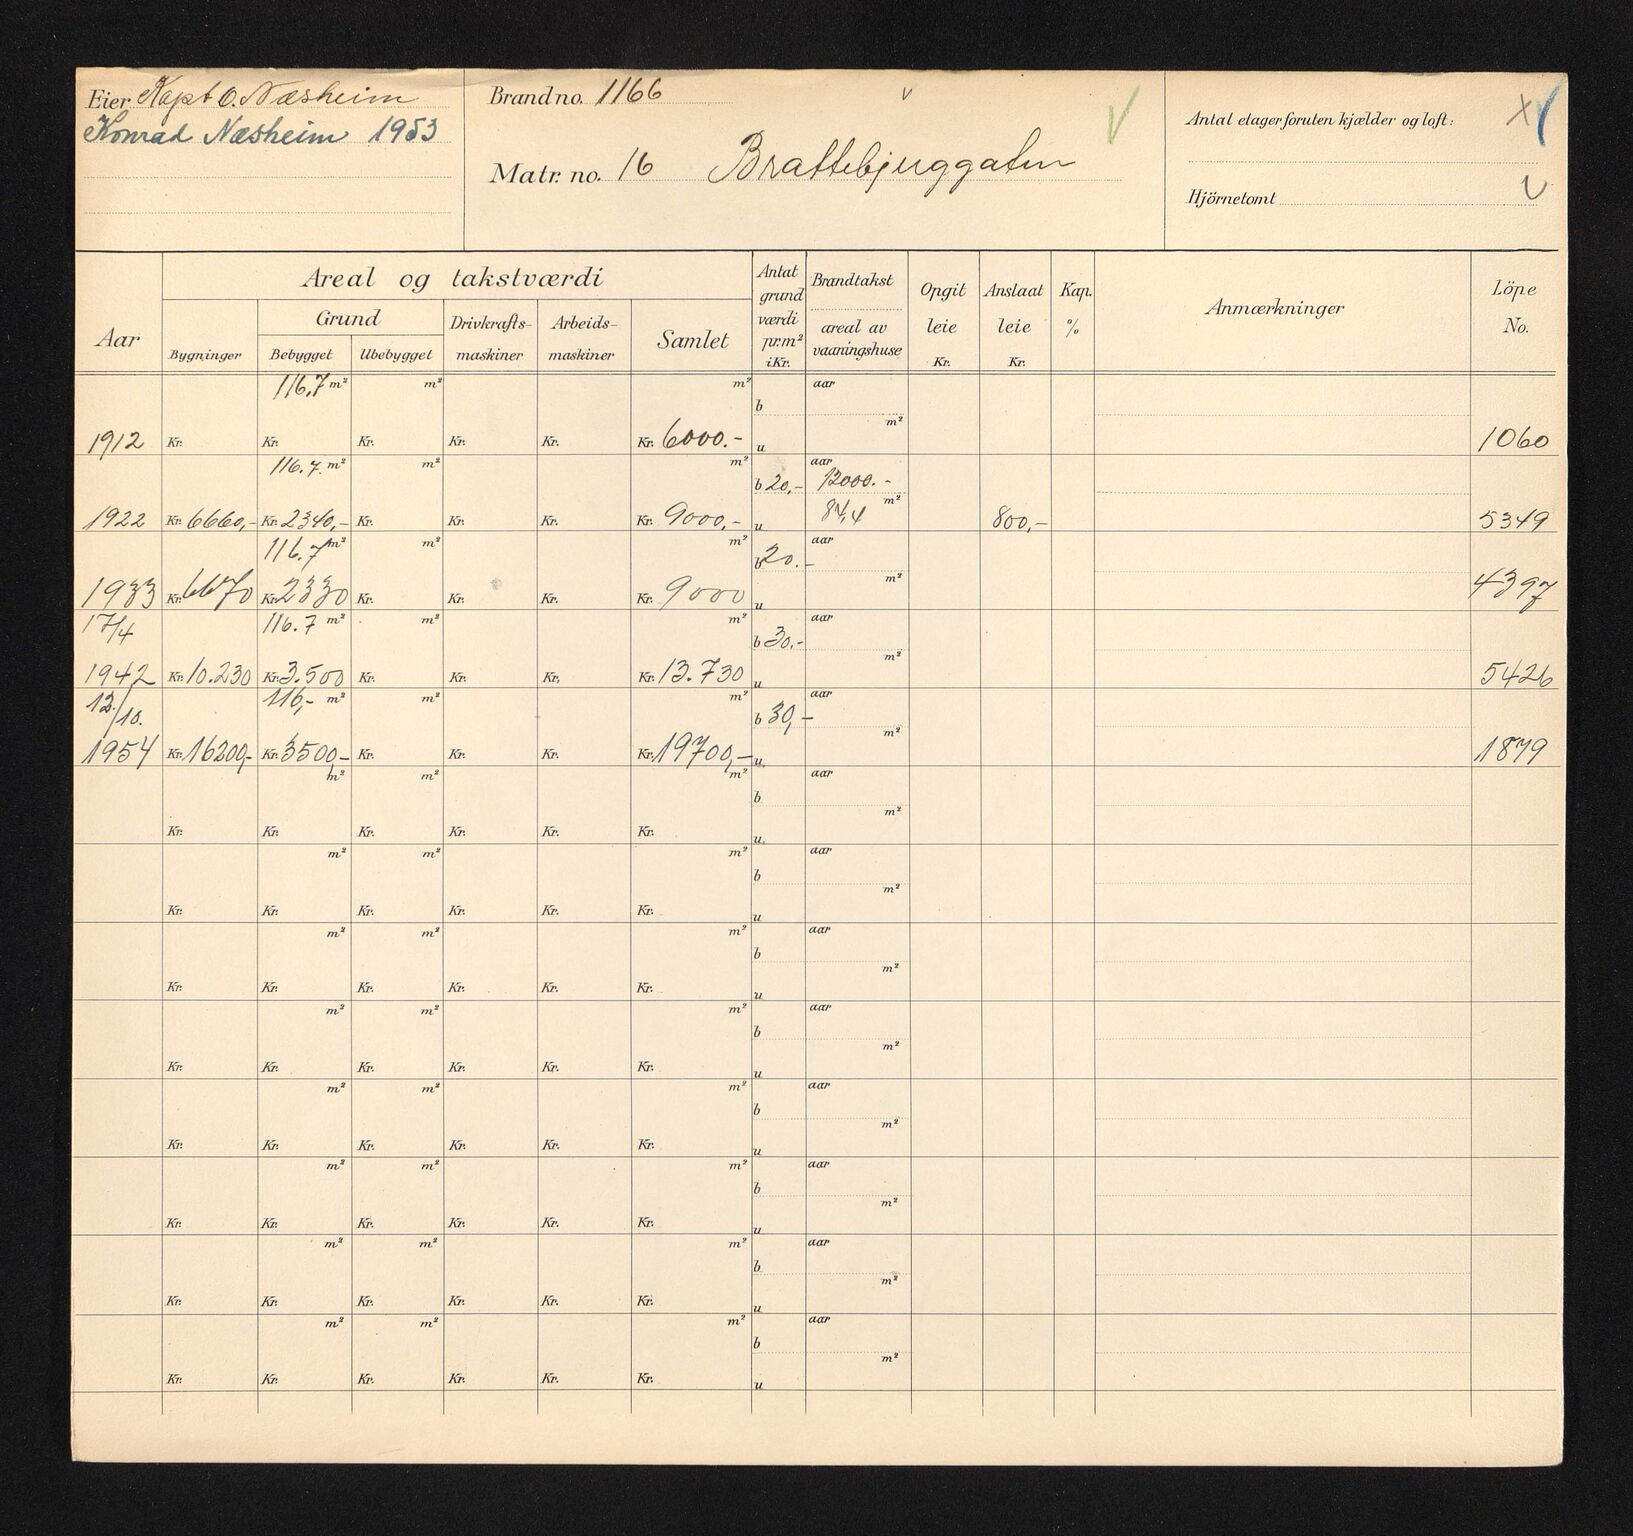 Eier Kapt O. Næsheim
Konrad Næsheim 1953
Brandno. 1166 v
Matr. no. 16 Brattebjerggaten
Antal etager foruten kjælder og loft:
Hjörnetomt
Aar
Areal og takstværdi
Bygninger
Grund
Bebygget Ubebygget
Drivkrafts-
maskiner
Arbeids-
maskiner
Samlet
Antat
grund
værdi
pr.m²
i Kr.
Brandtakst
areal av
vaaningshuse
Opgit
leie
Kr.
Anslaat
leie
Kr.
Kap.
%
Anmærkninger
Löpe
No.
116.7 m² m² m² aar
b
m²
1912 Kr. Kr. Kr. Kr. Kr. Kr. 6000.- u 1060
116.7. m² m² m² aar
b 20,- 12000.-
84,4 m²
1922 Kr. 6660,- Kr. 2340,- Kr. Kr. Kr. Kr. 9000,- u 800,- 5349
116.7 m² m² m² aar
b 20.-
m²
1933 Kr. 6670 Kr. 2330 Kr. Kr. Kr. Kr. 9000 u 4397
17/4 116.7 m² m² m² aar
b 30.-
m²
1942 Kr. 10.230 Kr. 3.500 Kr. Kr. Kr. Kr. 13.730 u 5426
12/10. 116,- m² m² m² aar
b 30,-
m²
1954 Kr. 16200,- Kr. 3500,- Kr. Kr. Kr. Kr. 19700,- u 1879
m² m² m² aar
b
m²
Kr. Kr. Kr. Kr. Kr. Kr. u
m² m² m² aar
b
m²
Kr. Kr. Kr. Kr. Kr. Kr. u
m² m² m² aar
b
m²
Kr. Kr. Kr. Kr. Kr. Kr. u
m² m² m² aar
b
m²
Kr. Kr. Kr. Kr. Kr. Kr. u
m² m² m² aar
b
m²
Kr. Kr. Kr. Kr. Kr. Kr. u
m² m² m² aar
b
m²
Kr. Kr. Kr. Kr. Kr. Kr. u
m² m² m² aar
b
m²
Kr. Kr. Kr. Kr. Kr. Kr. u
m² m² m² aar
b
m²
Kr. Kr. Kr. Kr. Kr. Kr. u